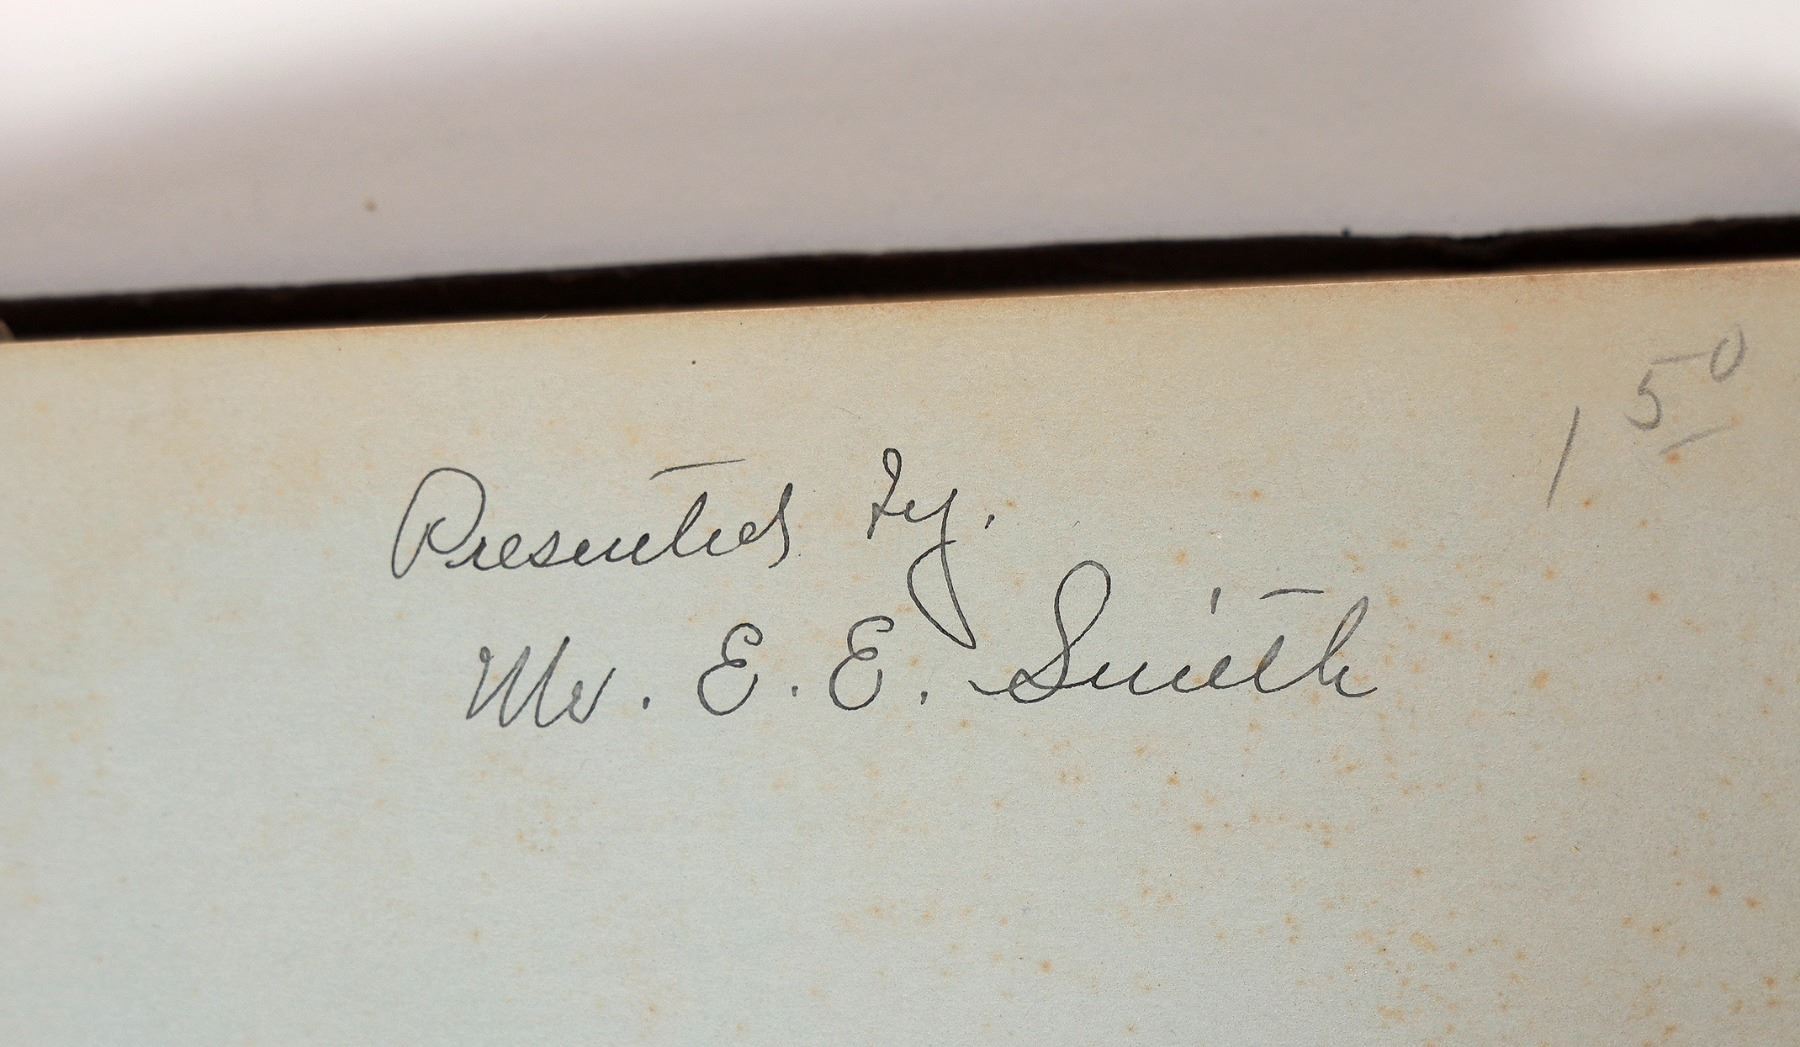 1 50
Presented by.
Mr. E. E. Smith